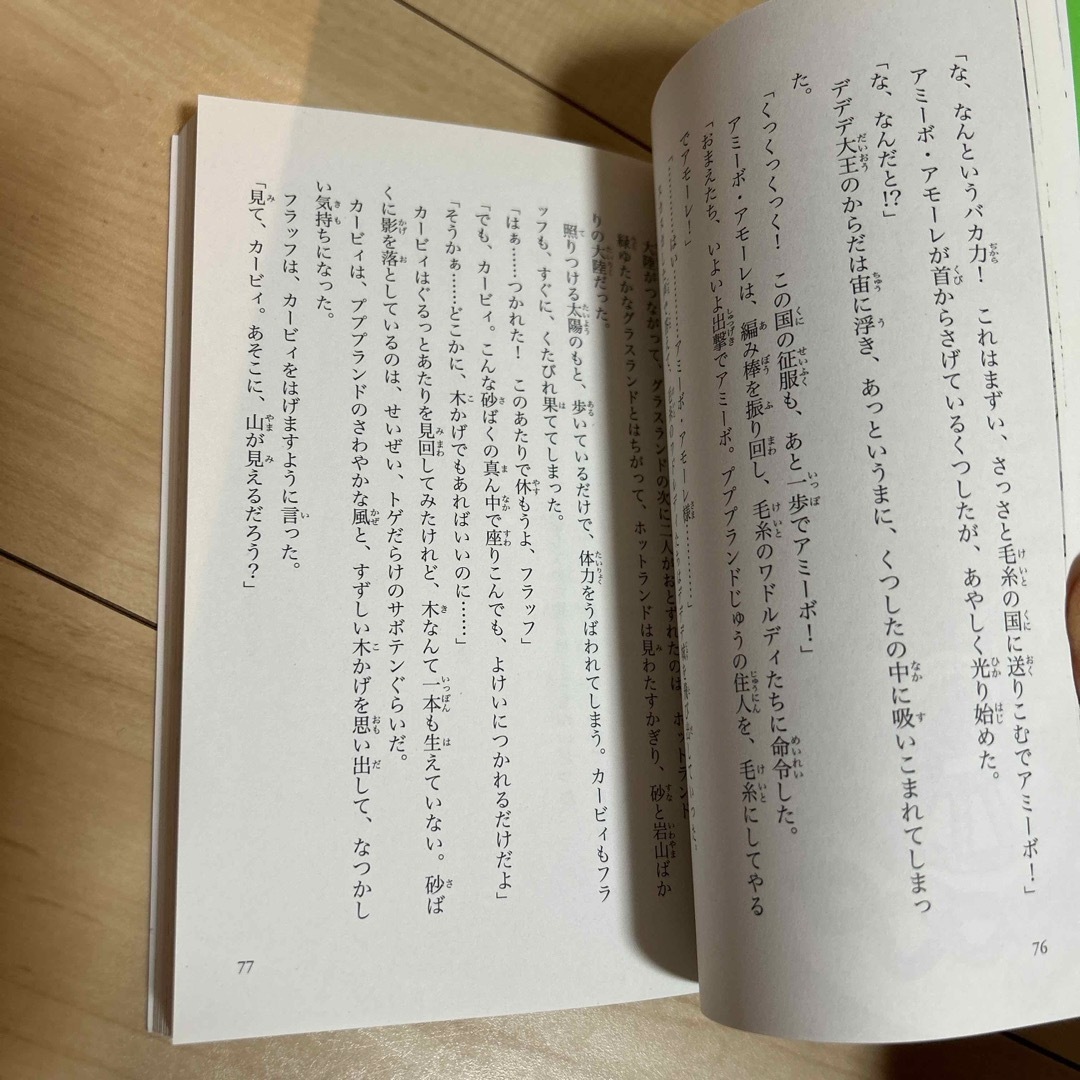 「な、なんというバカ力！　これはまずい、さっさと毛糸の国に送りこむでアミーボ！」
アミーボ・アモーレが首からさげているくつしたが、あやしく光り始めた。
「な、なんだと!?」
デデデ大王のからだは宙に浮き、あっというまに、くつしたの中に吸いこまれてしまっ
た。
「くっくっくっく！　この国の征服も、あと一歩でアミーボ！」
アミーボ・アモーレは、編み棒を振り回し、毛糸のワドルディたちに命令した。
「おまえたち、いよいよ出撃でアミーボ。プププランドじゅうの住人を、毛糸にしてやる
でアモーレ！」
「………はい……アミーボ・アモーレ様……」
76
大陸がつながって、グラスランドの次に二人がおとずれたのは、ホットランド
緑ゆたかなグラスランドとはちがって、ホットランドは見わたすかぎり、砂と岩山ばか
りの大陸だった。
照りつける太陽のもと、歩いているだけで、体力をうばわれてしまう。カービィもフラ
ッフも、すぐに、くたびれ果ててしまった。
「はぁ……つかれた！　このあたりで休もうよ、フラッフ」
「でも、カービィ。こんな砂ばくの真ん中で座りこんでも、よけいにつかれるだけだよ」
「そうかぁ……どこかに、木かげでもあればいいのに……」
カービィはぐるっとあたりを見回してみたけれど、木なんて一本も生えていない。砂ば
くに影を落としているのは、せいぜい、トゲだらけのサボテンぐらいだ。
カービィは、プププランドのさわやかな風と、すずしい木かげを思い出して、なつかし
い気持ちになった。
フラッフは、カービィをはげますように言った。
「見て、カービィ。あそこに、山が見えるだろう？」
77